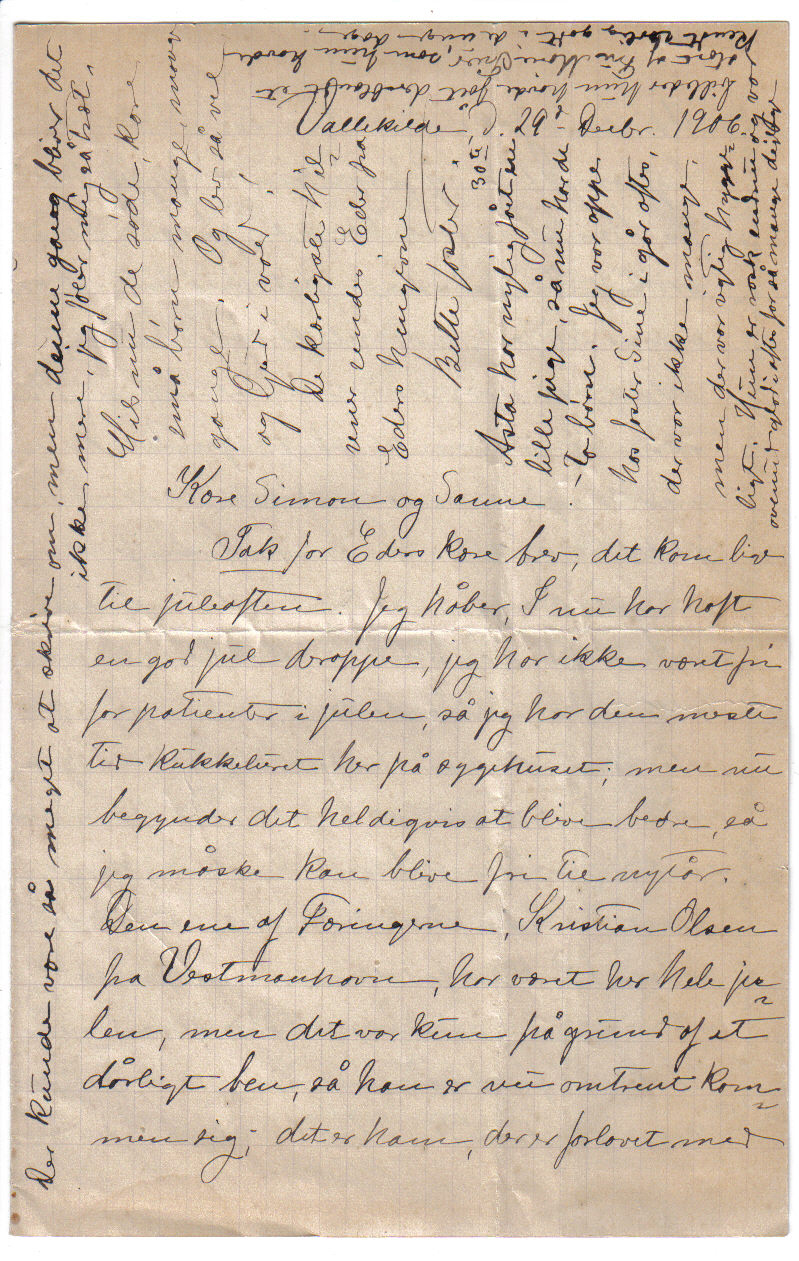 Vallekilde, d. 29 Decbr. 1906.
Kære Simon og Sanne.
Tak for Eders kære brev, det kom lige
til juleaften. Jeg håber, I nu har haft
en god jul deroppe, jeg har ikke været fri
for patienter i julen, så jeg har den meste
tid kukkeluret her på sygehuset; men nu
begynder det heldigvis at blive bedre, så
jeg måske kan blive fri til nytår.
Den ene af Færingerne, Kristian Olsen
fra Vestmanhavn, har været her hele ju-
len, men det var kun på grund af et
dårligt ben, så han er nu omtrent kom-
men sig; det er ham, der er forlovet med
Der kunde være så meget at skrive om, men denne gang bliver det
ikke mere, jeg føler mig så træt.
Hils nu de søde, kære
små børn mange, mange
gange. Og lev så vel
og Gud i vold!
De kærligste hil-
sener sendes Eder fra
Eders hengivne
Bitte faster.
30te
Asta har nylig fået en
lille pige, så nu har de
to børn. Jeg var oppe
hos faster Sine i går aftes,
der var ikke mange,
men der var rigtig hygge-
ligt. Hun er rask endnu og var
glad i aftes for så mange
billeder hun havde fået deriblandt et
stort af Fru Marie, som hun havde
kendt godt i de unge dage.